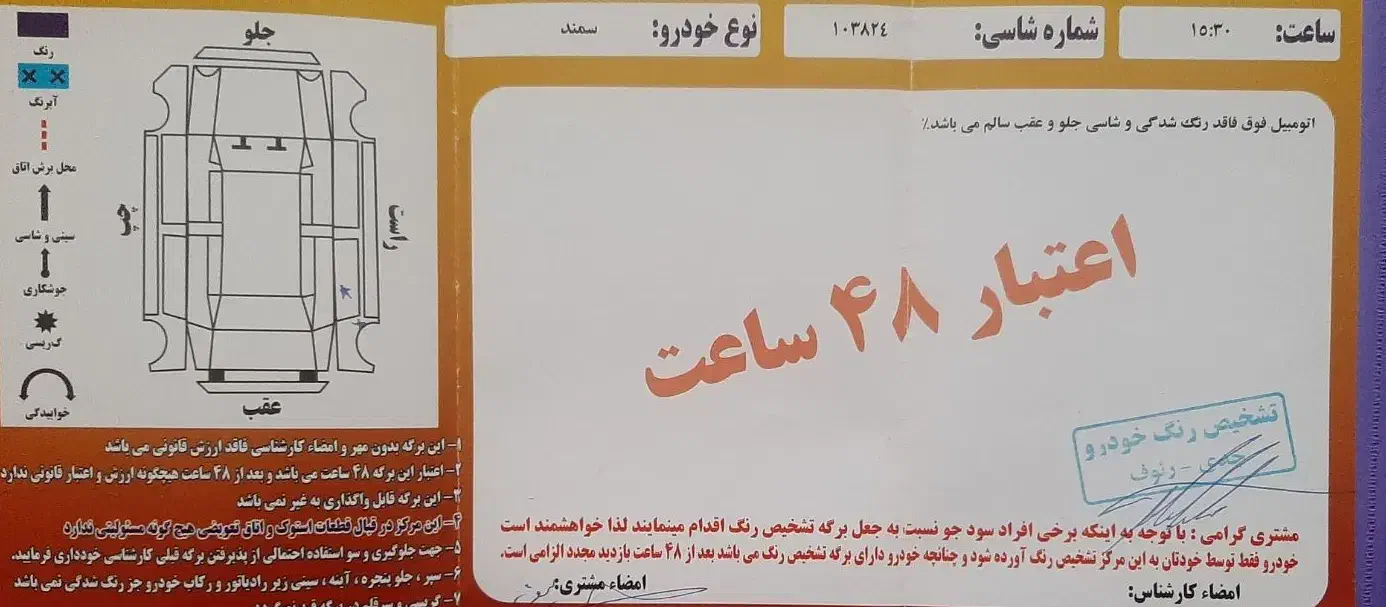 ساعت: ۱۵:۳۰
شماره شاسی: ۱۰۳۸۲٤
نوع خودرو: سمند
اتومبیل فوق فاقد رنگ شدگی و شاسی جلو و عقب سالم می باشد.٪
اعتبار ۴۸ ساعت
تشخیص رنگ خودرو
جدی - رئوف
مشتری گرامی : با توجه به اینکه برخی افراد سود جو نسبت به جعل برگه تشخیص رنگ اقدام مینمایند لذا خواهشمند است
خودرو فقط توسط خودتان به این مرکز تشخیص رنگ آورده شود و چنانچه خودرو دارای برگه تشخیص رنگ می باشد بعد از ۴۸ ساعت بازدید مجدد الزامی است.
امضاء کارشناس:
امضاء مشتری:
جلو
راست
چپ
عقب
رنگ
آبرنگ
محل برش اتاق
سینی و شاسی
جوشکاری
گریسی
خوابیدگی
۱- این برگه بدون مهر و امضاء کارشناسی فاقد ارزش قانونی می باشد
۲- اعتبار این برگه ۴۸ ساعت می باشد و بعد از ۴۸ ساعت هیچگونه ارزش و اعتبار قانونی ندارد
۳- این برگه قابل واگذاری به غیر نمی باشد
۴- این مرکز در قبال قطعات استوک و اتاق تعویضی هیچ گونه مسئولیتی ندارد
۵- جهت جلوگیری و سو استفاده احتمالی از پذیرفتن برگه قبلی کارشناسی خودداری فرمایید.
۶- سپر ، جلو پنجره ، آئنه ، سینی زیر رادیاتور و رکاب خودرو جز رنگ شدگی نمی باشد
۷- گریسی و سرقلم در برگه قید نمی گردد